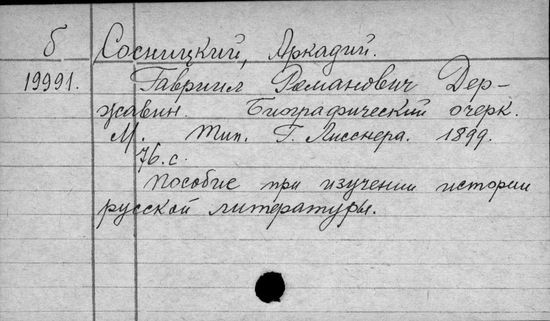 б Сосницкий, Аркадий.
19991. Гавриил Романович Дер-
жавин. Биографический очерк.
М. Тип. Г. Лисснера. 1899.
76.с.
Пособие при изучении истории
русской литературы.